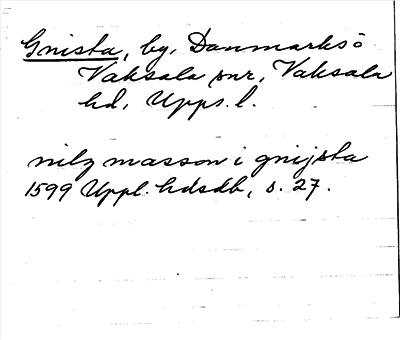 Gnista, by, Danmarks o
Vaksala snr, Vaksala
hd, Upps. l.
nilz masson i gnijsta
1599 Uppl. hdsdb, s. 27.